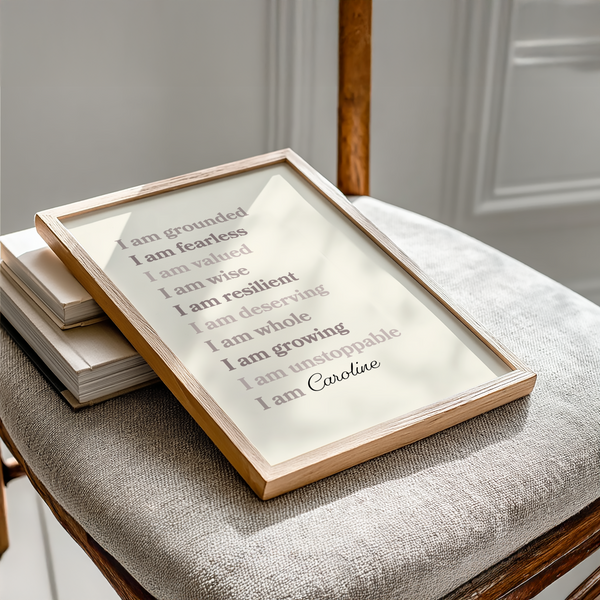 I am grounded
I am fearless
I am valued
I am wise
I am resilient
I am deserving
I am whole
I am growing
I am unstoppable
I am Caroline